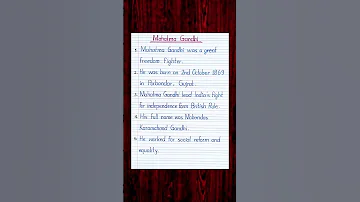 Mahatma Gandhi
1. Mahatma Gandhi was a great
freedom fighter.
2. He was born on 2nd October 1869
in Porbandar, Gujrat.
3. Mahatma Gandhi lead India's fight
for independence from British Rule.
4. His full name was Mohandas
Karamchand Gandhi.
5. He worked for social reform and
equality.